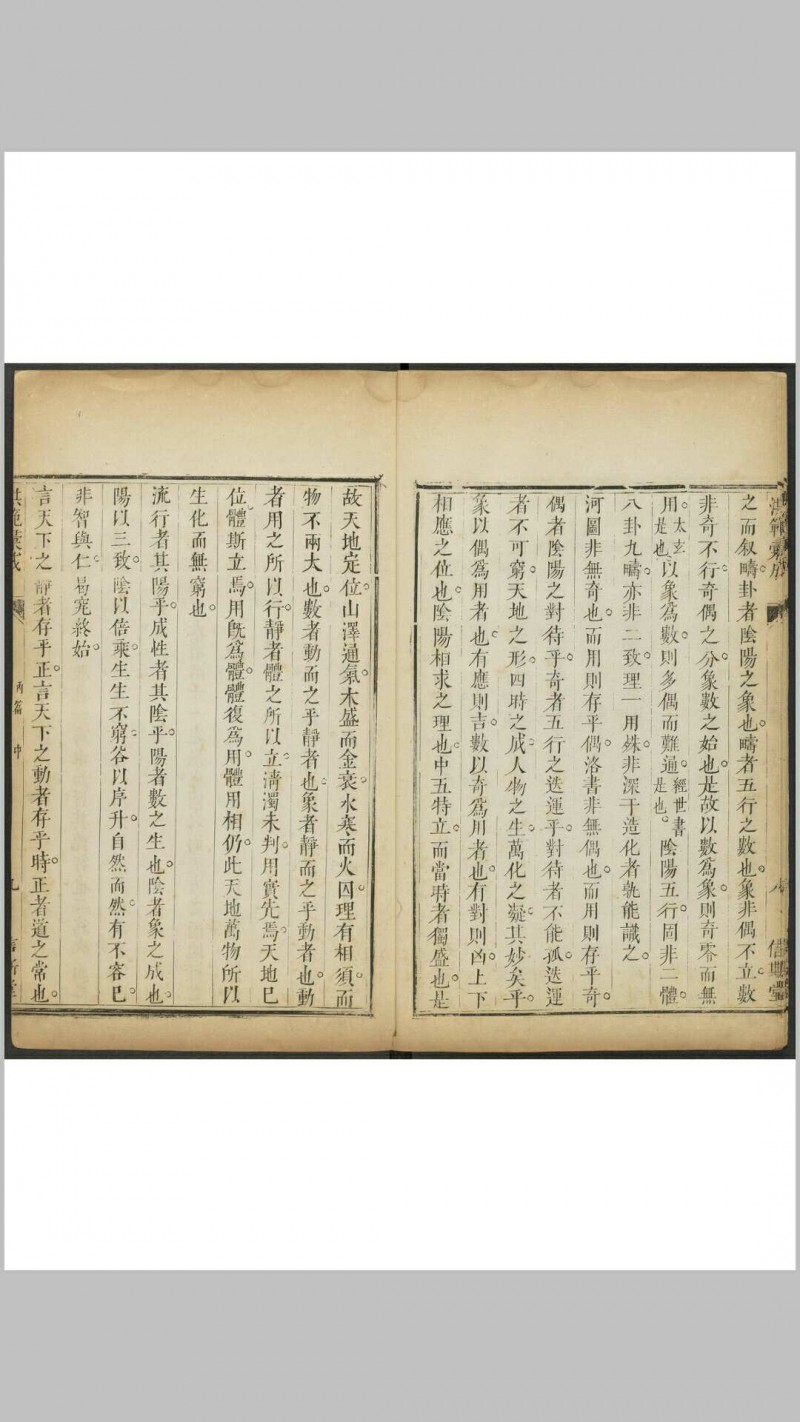 之而叙疇。卦者陰陽之象也。疇者五行之數也。象非偶不立。數
非奇不行。奇偶之分。象數之始也。是故以數為象。則奇零而無
用。太玄是也。以象為數。則多偶而難通。經世書是也。陰陽五行。固非二體。
八卦九疇。亦非二致。理一用殊。非深于造化者。孰能識之。
河圖非無奇也。而用則存乎偶。洛書非無偶也。而用則存乎奇。
偶者陰陽之對待乎。奇者五行之迭運乎。對待者不能孤。迭運
者不可窮。天地之形。四時之成。人物之生。萬化之凝。其妙矣乎。
象以偶為用者也。有應則吉。數以奇為用者也。有對則凶。上下
相應之位也。陰陽相求之理也。中五特立。而當時者獨盛也。是
故天地定位。山澤通氣。木盛而金衰。水寒而火囚。理有相須。而
物不兩大也。數者動而之乎靜者也。象者靜而之乎動者也。動
者用之所以行。靜者體之所以立。清濁未判。用實先焉。天地已
位。體斯立焉。用既為體。體復為用。體用相仍。此天地萬物所以
生化而無窮也。
流行者其陽乎。成性者其陰乎。陽者數之生也。陰者象之成也。
陽以三致。陰以倍乘。生生不窮。各以序升。自然而然。有不容已。
非智與仁。曷究終始。
言天下之靜者存乎正。言天下之動者存乎時。正者道之常也。
丙篇 中 九